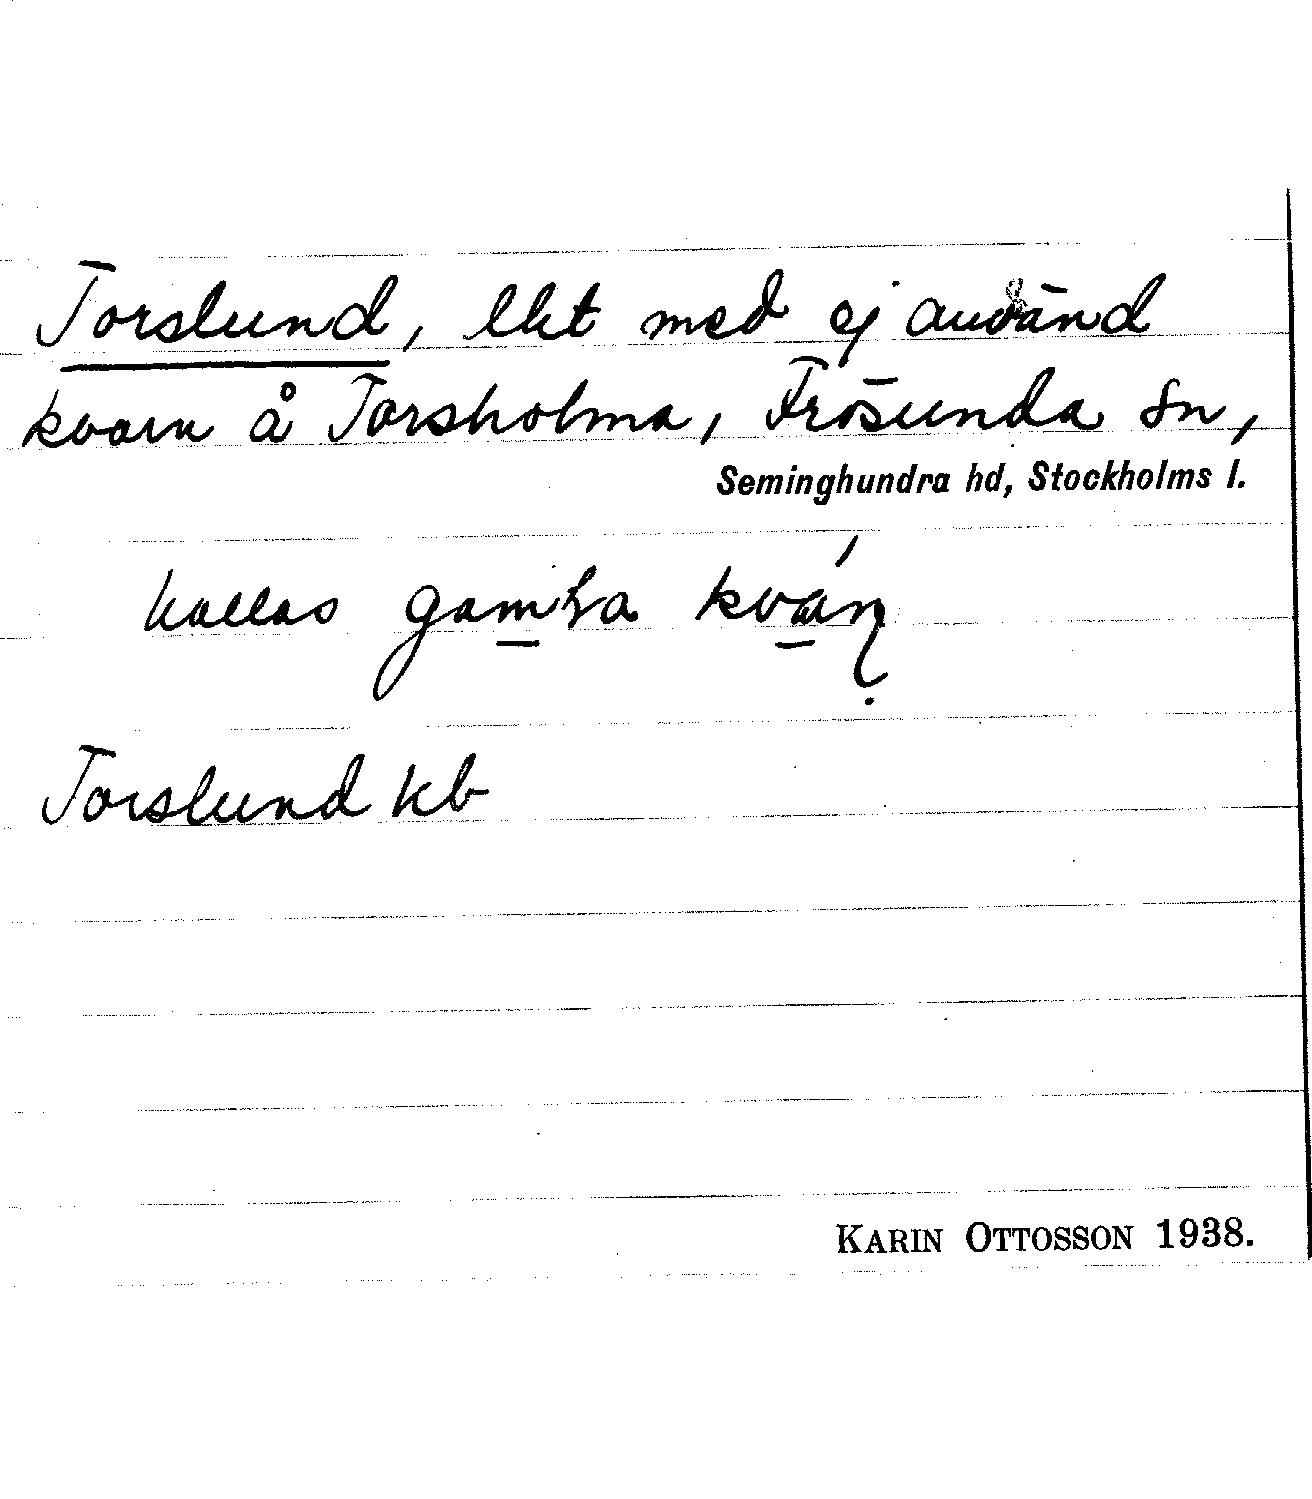 Torslund, lht med ej använd
kvarn å Torsholma, Frösunda sn,
Seminghundra hd, Stockholms l.
kallas
Torslund kb
KARIN OTTOSSON 1938.